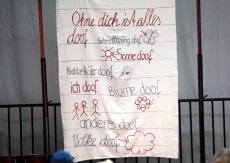 Ohne dich ist alles
doof
Schmetterling doof
Sonne doof
Krabbelkäfer doof
ich doof Blume doof
andere doof
Wolke doof